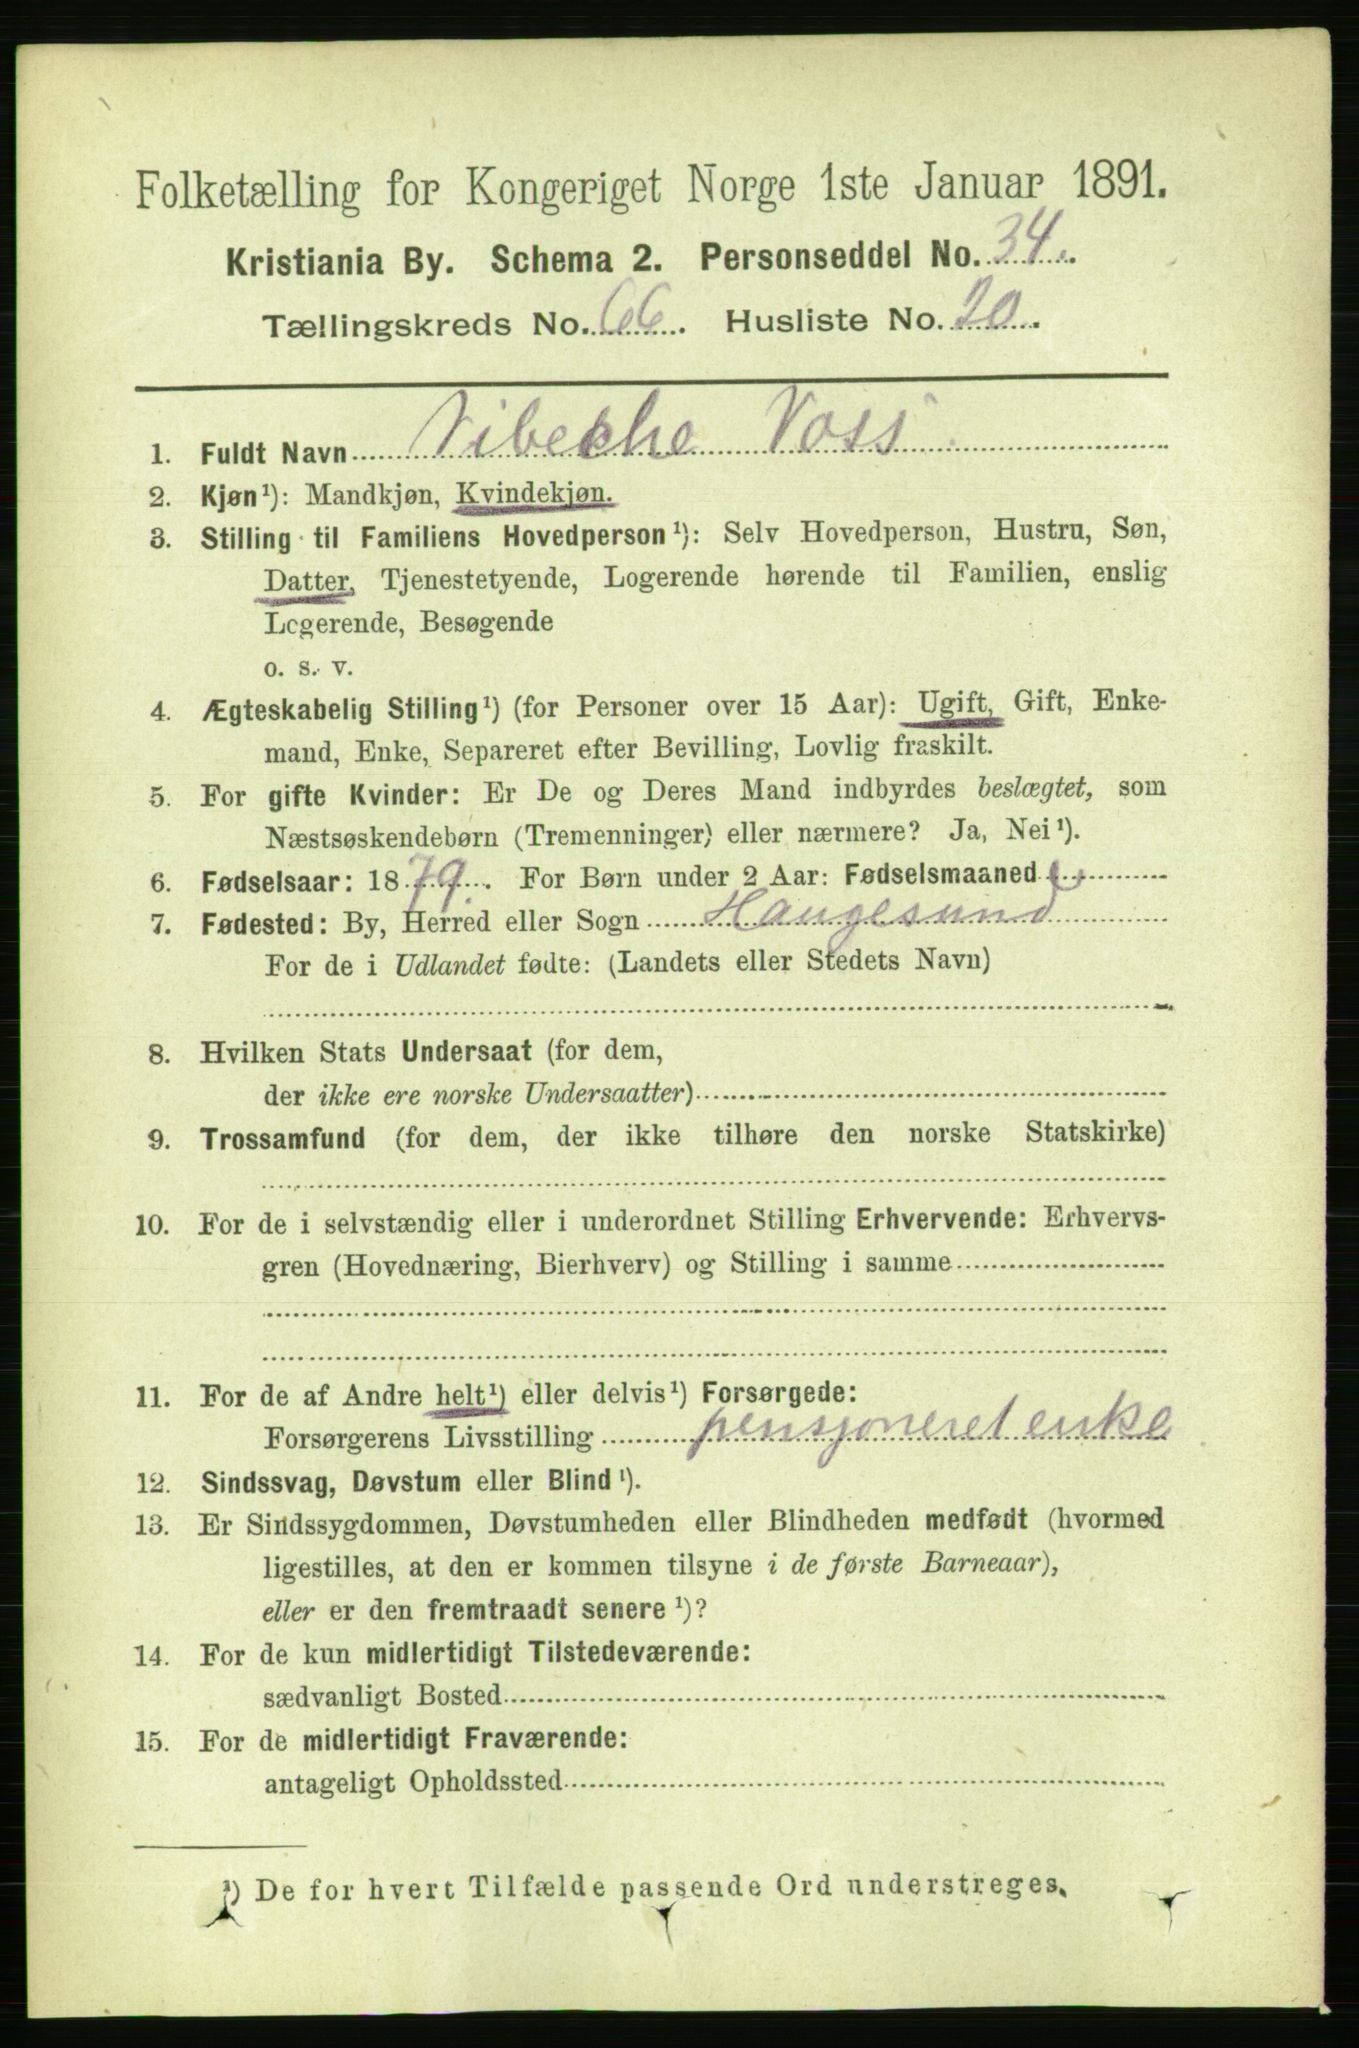 Folketælling for Kongeriget Norge 1ste Januar 1891.
Kristiania By. Schema 2. Personseddel No. 34.
Tællingskreds No. 66. Husliste No. 20.
1. Fuldt Navn Vibecke Voss
2. Kjøn¹): Mandkjøn, Kvindekjøn.
3. Stilling til Familiens Hovedperson¹): Selv Hovedperson, Hustru, Søn,
Datter, Tjenestetyende, Logerende hørende til Familien, enslig
Logerende, Besøgende
o. s. v.
4. Ægteskabelig Stilling¹) (for Personer over 15 Aar): Ugift, Gift, Enke-
mand, Enke, Separeret efter Bevilling, Lovlig fraskilt.
5. For gifte Kvinder: Er De og Deres Mand indbyrdes beslægtet, som
Næstsøskendebørn (Tremenninger) eller nærmere? Ja, Nei¹).
6. Fødselsaar: 1879. For Børn under 2 Aar: Fødselsmaaned
7. Fødested: By, Herred eller Sogn Haugesund
For de i Udlandet fødte: (Landets eller Stedets Navn)
8. Hvilken Stats Undersaat (for dem,
der ikke ere norske Undersaatter)
9. Trossamfund (for dem, der ikke tilhøre den norske Statskirke)
10. For de i selvstændig eller i underordnet Stilling Erhvervende: Erhvervs-
gren (Hovednæring, Bierhverv) og Stilling i samme
11. For de af Andre helt¹) eller delvis¹) Forsørgede:
Forsørgerens Livsstilling pensjoneret enke
12. Sindssvag, Døvstum eller Blind¹).
13. Er Sindssygdommen, Døvstumheden eller Blindheden medfødt (hvormed
ligestilles, at den er kommen tilsyne i de første Barneaar),
eller er den fremtraadt senere¹)?
14. For de kun midlertidigt Tilstedeværende:
sædvanligt Bosted
15. For de midlertidigt Fraværende:
antageligt Opholdssted
¹) De for hvert Tilfælde passende Ord understreges.